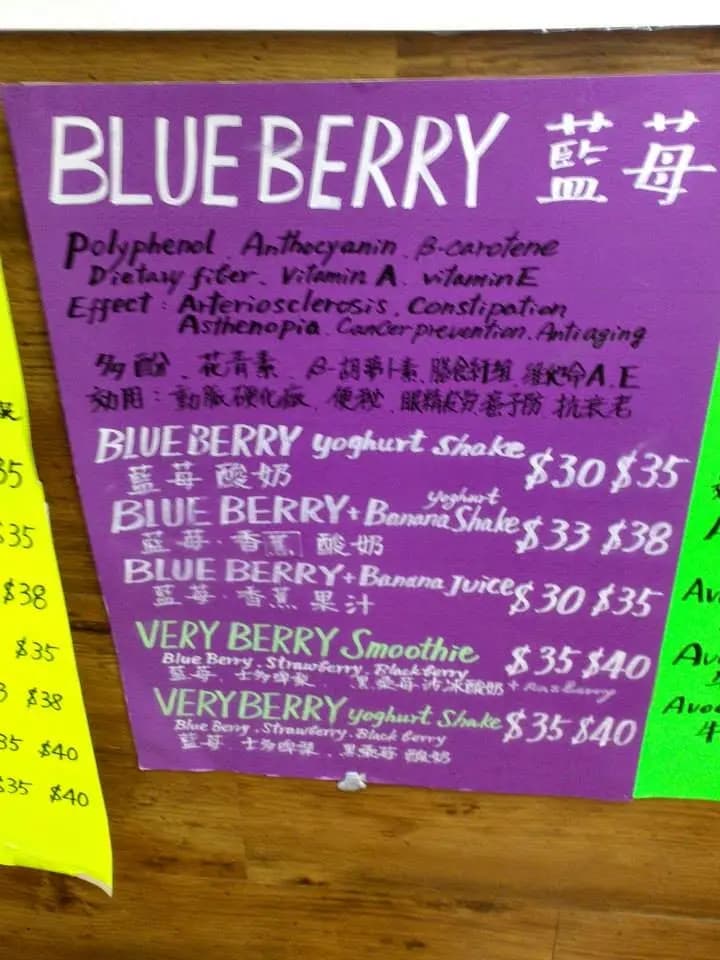 BLUE BERRY 藍莓
Polyphenol. Anthocyanin. β-carotene
Dietary fiber. Vitamin A. vitamin E
Effect: Arteriosclerosis. Constipation
Asthenopia. Cancer prevention. Anti aging
多酚、花青素、β-胡蘿蔔素、膳食纖維、維他命A.E
効用：動脈硬化症、便秘、眼精疲労、予防、抗衰老
BLUE BERRY yoghurt Shake $30 $35
藍莓酸奶
BLUE BERRY + Banana yoghurt Shake $33 $38
藍莓·香蕉 酸奶
BLUE BERRY + Banana Juice $30 $35
藍莓·香蕉果汁
VERY BERRY Smoothie $35 $40
Blue Berry. Strawberry. Blackberry
藍莓、士多啤梨、黑桑莓 冰酸奶
VERY BERRY yoghurt Shake $35 $40
Blue Berry. Strawberry. Black berry
藍莓、士多啤梨、黑桑莓 酸奶
35
$35
$38
$35
$38
35 $40
$35 $40
牛